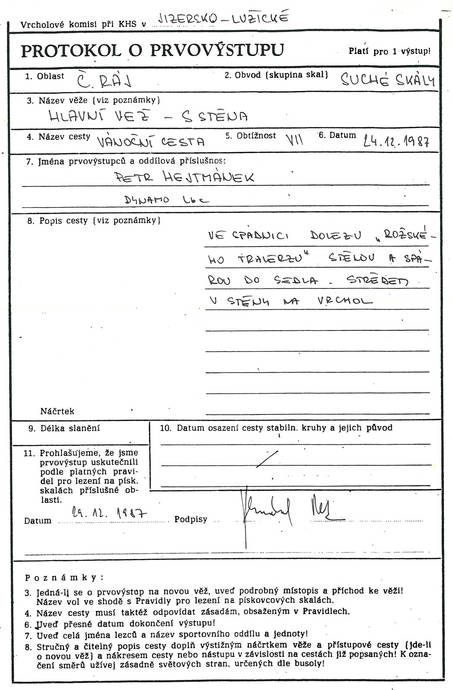 Vrcholové komisi při KHS v JIZERSKO-LUŽICKÉ
PROTOKOL O PRVOVÝSTUPU Platí pro 1 výstup!
1. Oblast Č. RÁJ 2. Obvod (skupina skal) SUCHÉ SKÁLY
3. Název věže (viz poznámky)
HLAVNÍ VĚŽ - S STĚNA
4. Název cesty VÁNOČNÍ CESTA 5. Obtížnost VII 6. Datum 24.12.1987
7. Jména prvovýstupců a oddílová příslušnos:
PETR HEJTMÁNEK
DYNAMO LBC
8. Popis cesty (viz poznámky)
VE SPÁDNICI DOLEZU „ROŽSKÉ-
HO TRAVERZU“ STĚNOU A SPÁ-
ROU DO SEDLA. STŘEDEM
V STĚNY NA VRCHOL
Náčrtek
9. Délka slanění 10. Datum osazení cesty stabiln. kruhy a jejich původ
11. Prohlašujeme, že jsme
prvovýstup uskutečnili
podle platných pravi-
del pro lezení na písk.
skalách příslušné ob-
lasti.
Datum 29.12.1987 Podpisy
Poznámky:
3. Jedná-li se o prvovýstup na novou věž, uveď podrobný místopis a příchod ke věži!
Název vol ve shodě s Pravidly pro lezení na pískovcových skalách.
4. Název cesty musí taktéž odpovídat zásadám, obsaženým v Pravidlech.
6. Uveď přesné datum dokončení výstupu!
7. Uveď celá jména lezců a název sportovního oddílu a jednoty!
8. Stručný a čitelný popis cesty doplň výstižným náčrtkem věže a přístupové cesty (jde-li
o novou věž) a nákresem cesty nebo nástupu v závislosti na cestách již popsaných! K ozna-
čení směrů užívej zásadně světových stran, určených dle busoly!